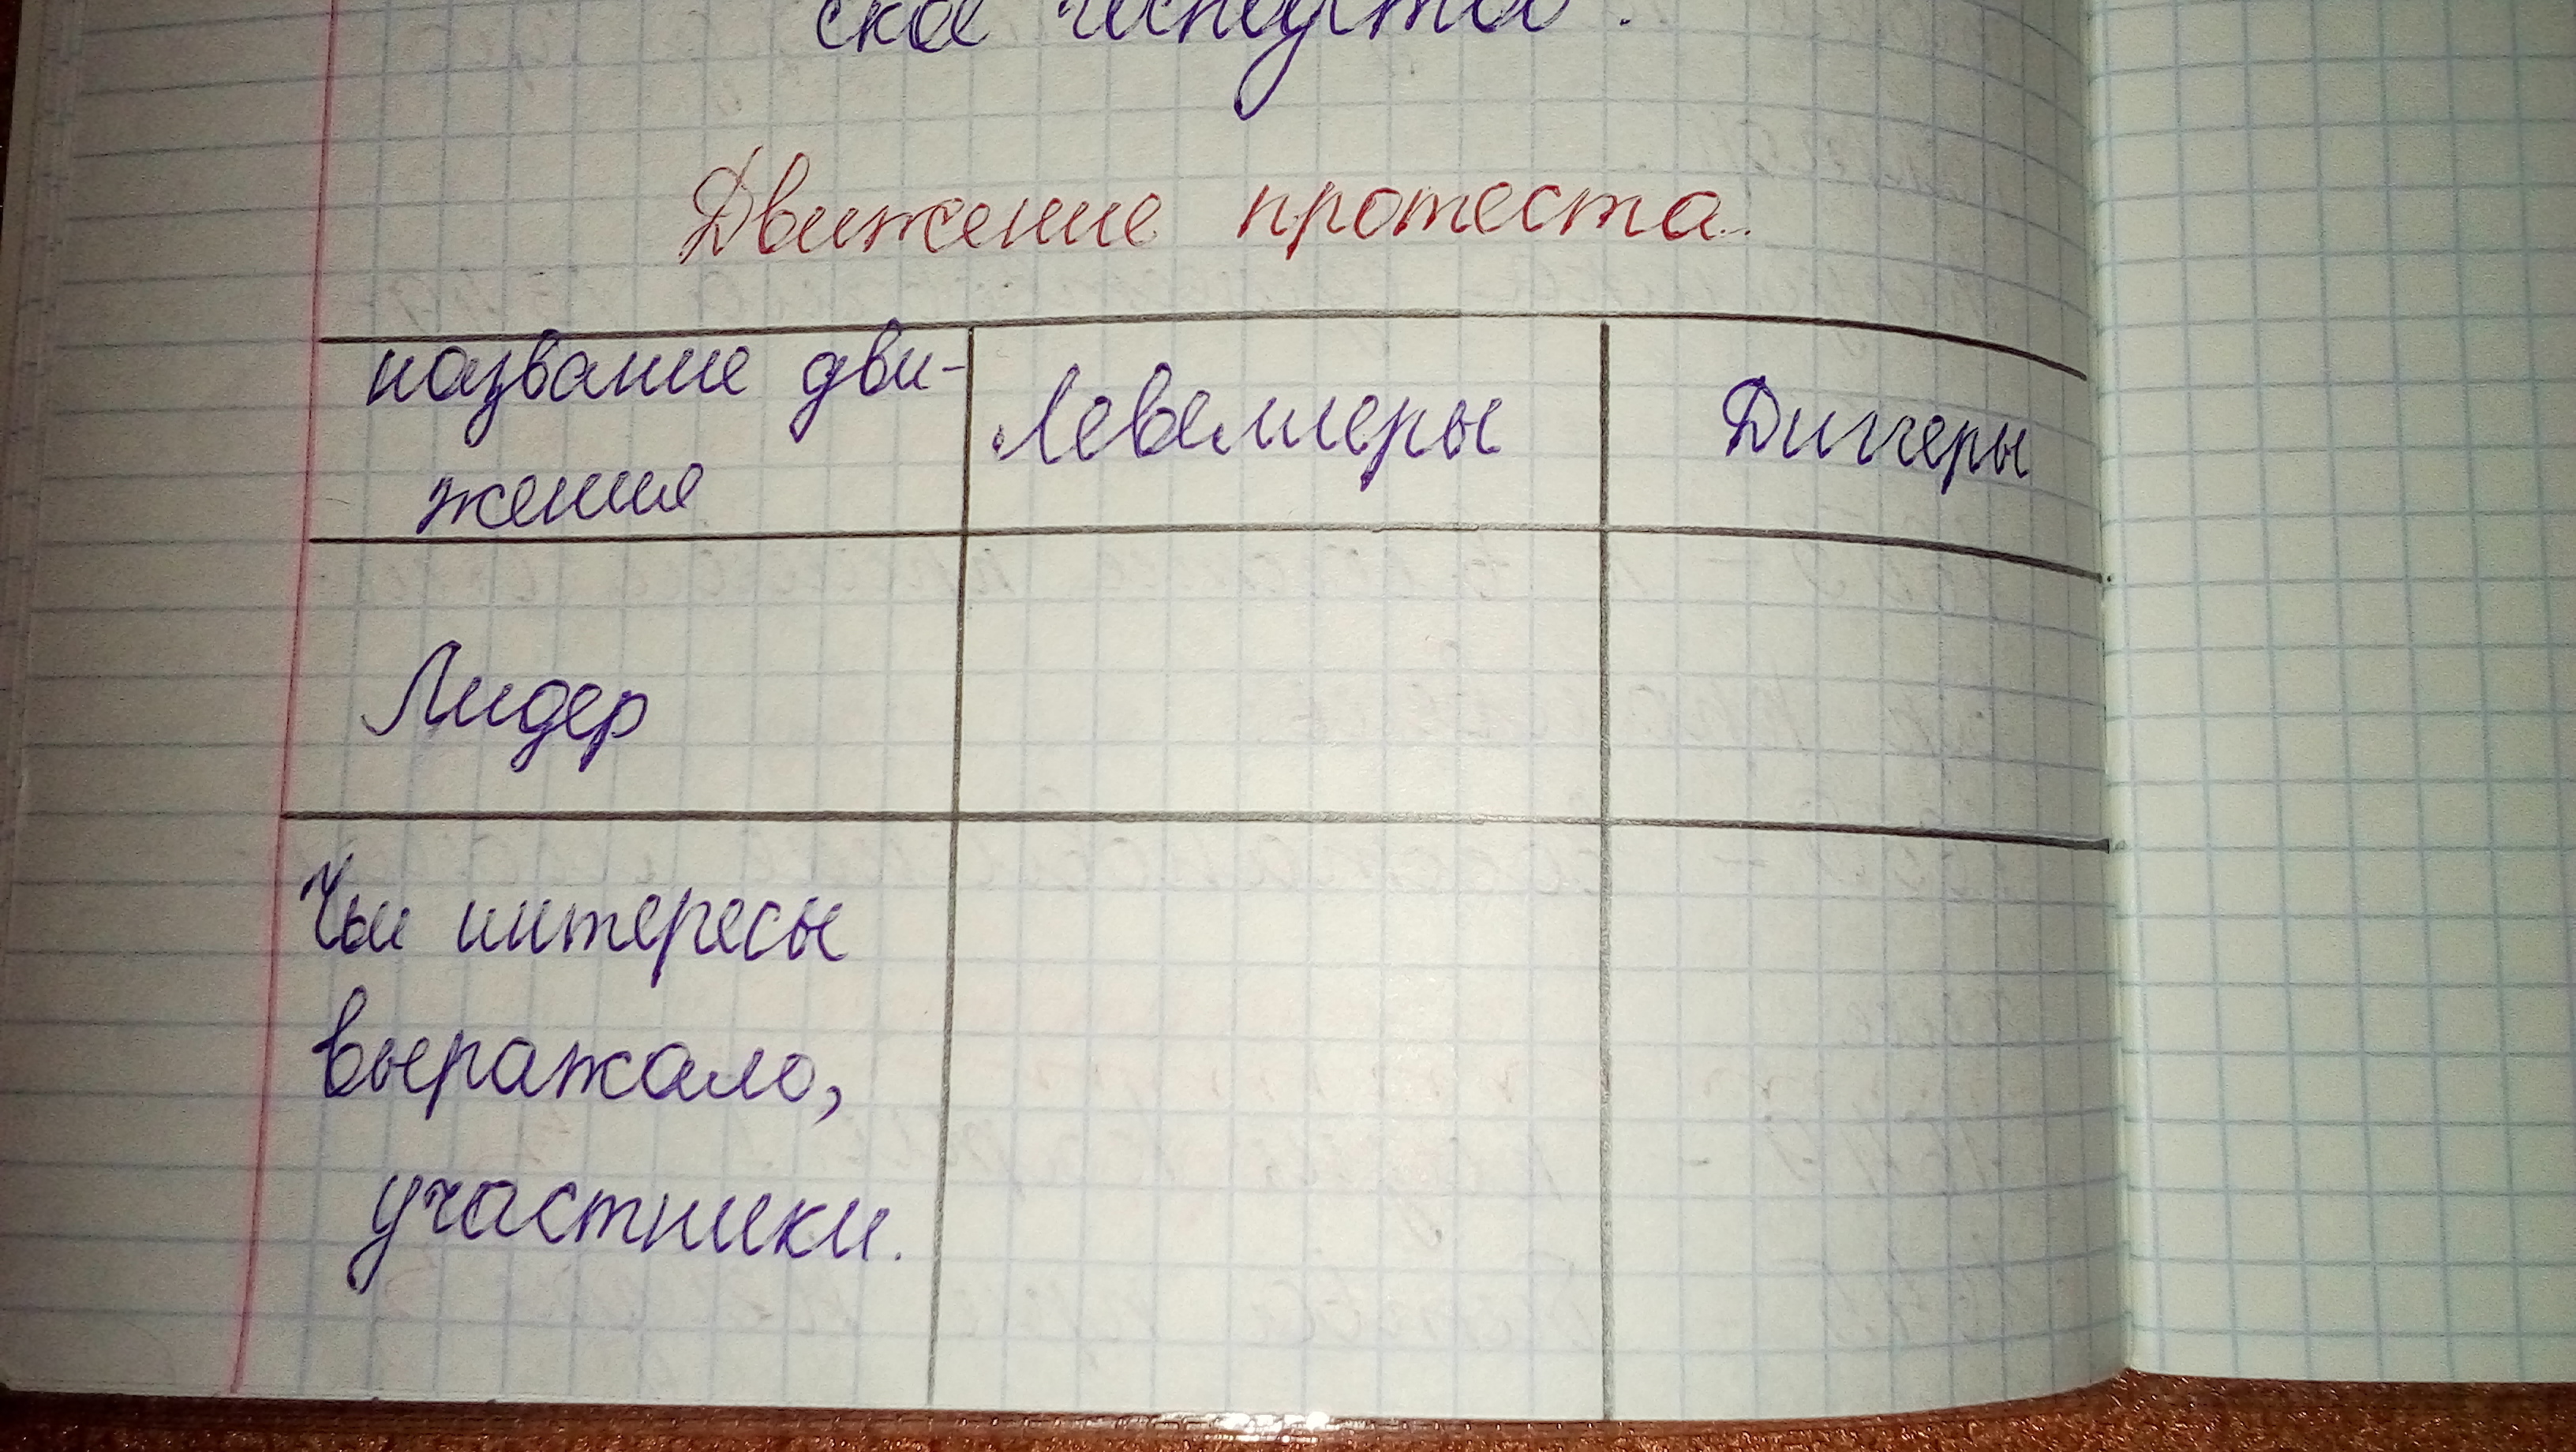 ское госпудство.
Движение протеста.
название дви-
жения
Левеллеры
Диггеры
Лидер
Чьи интересы
выражало,
участники.